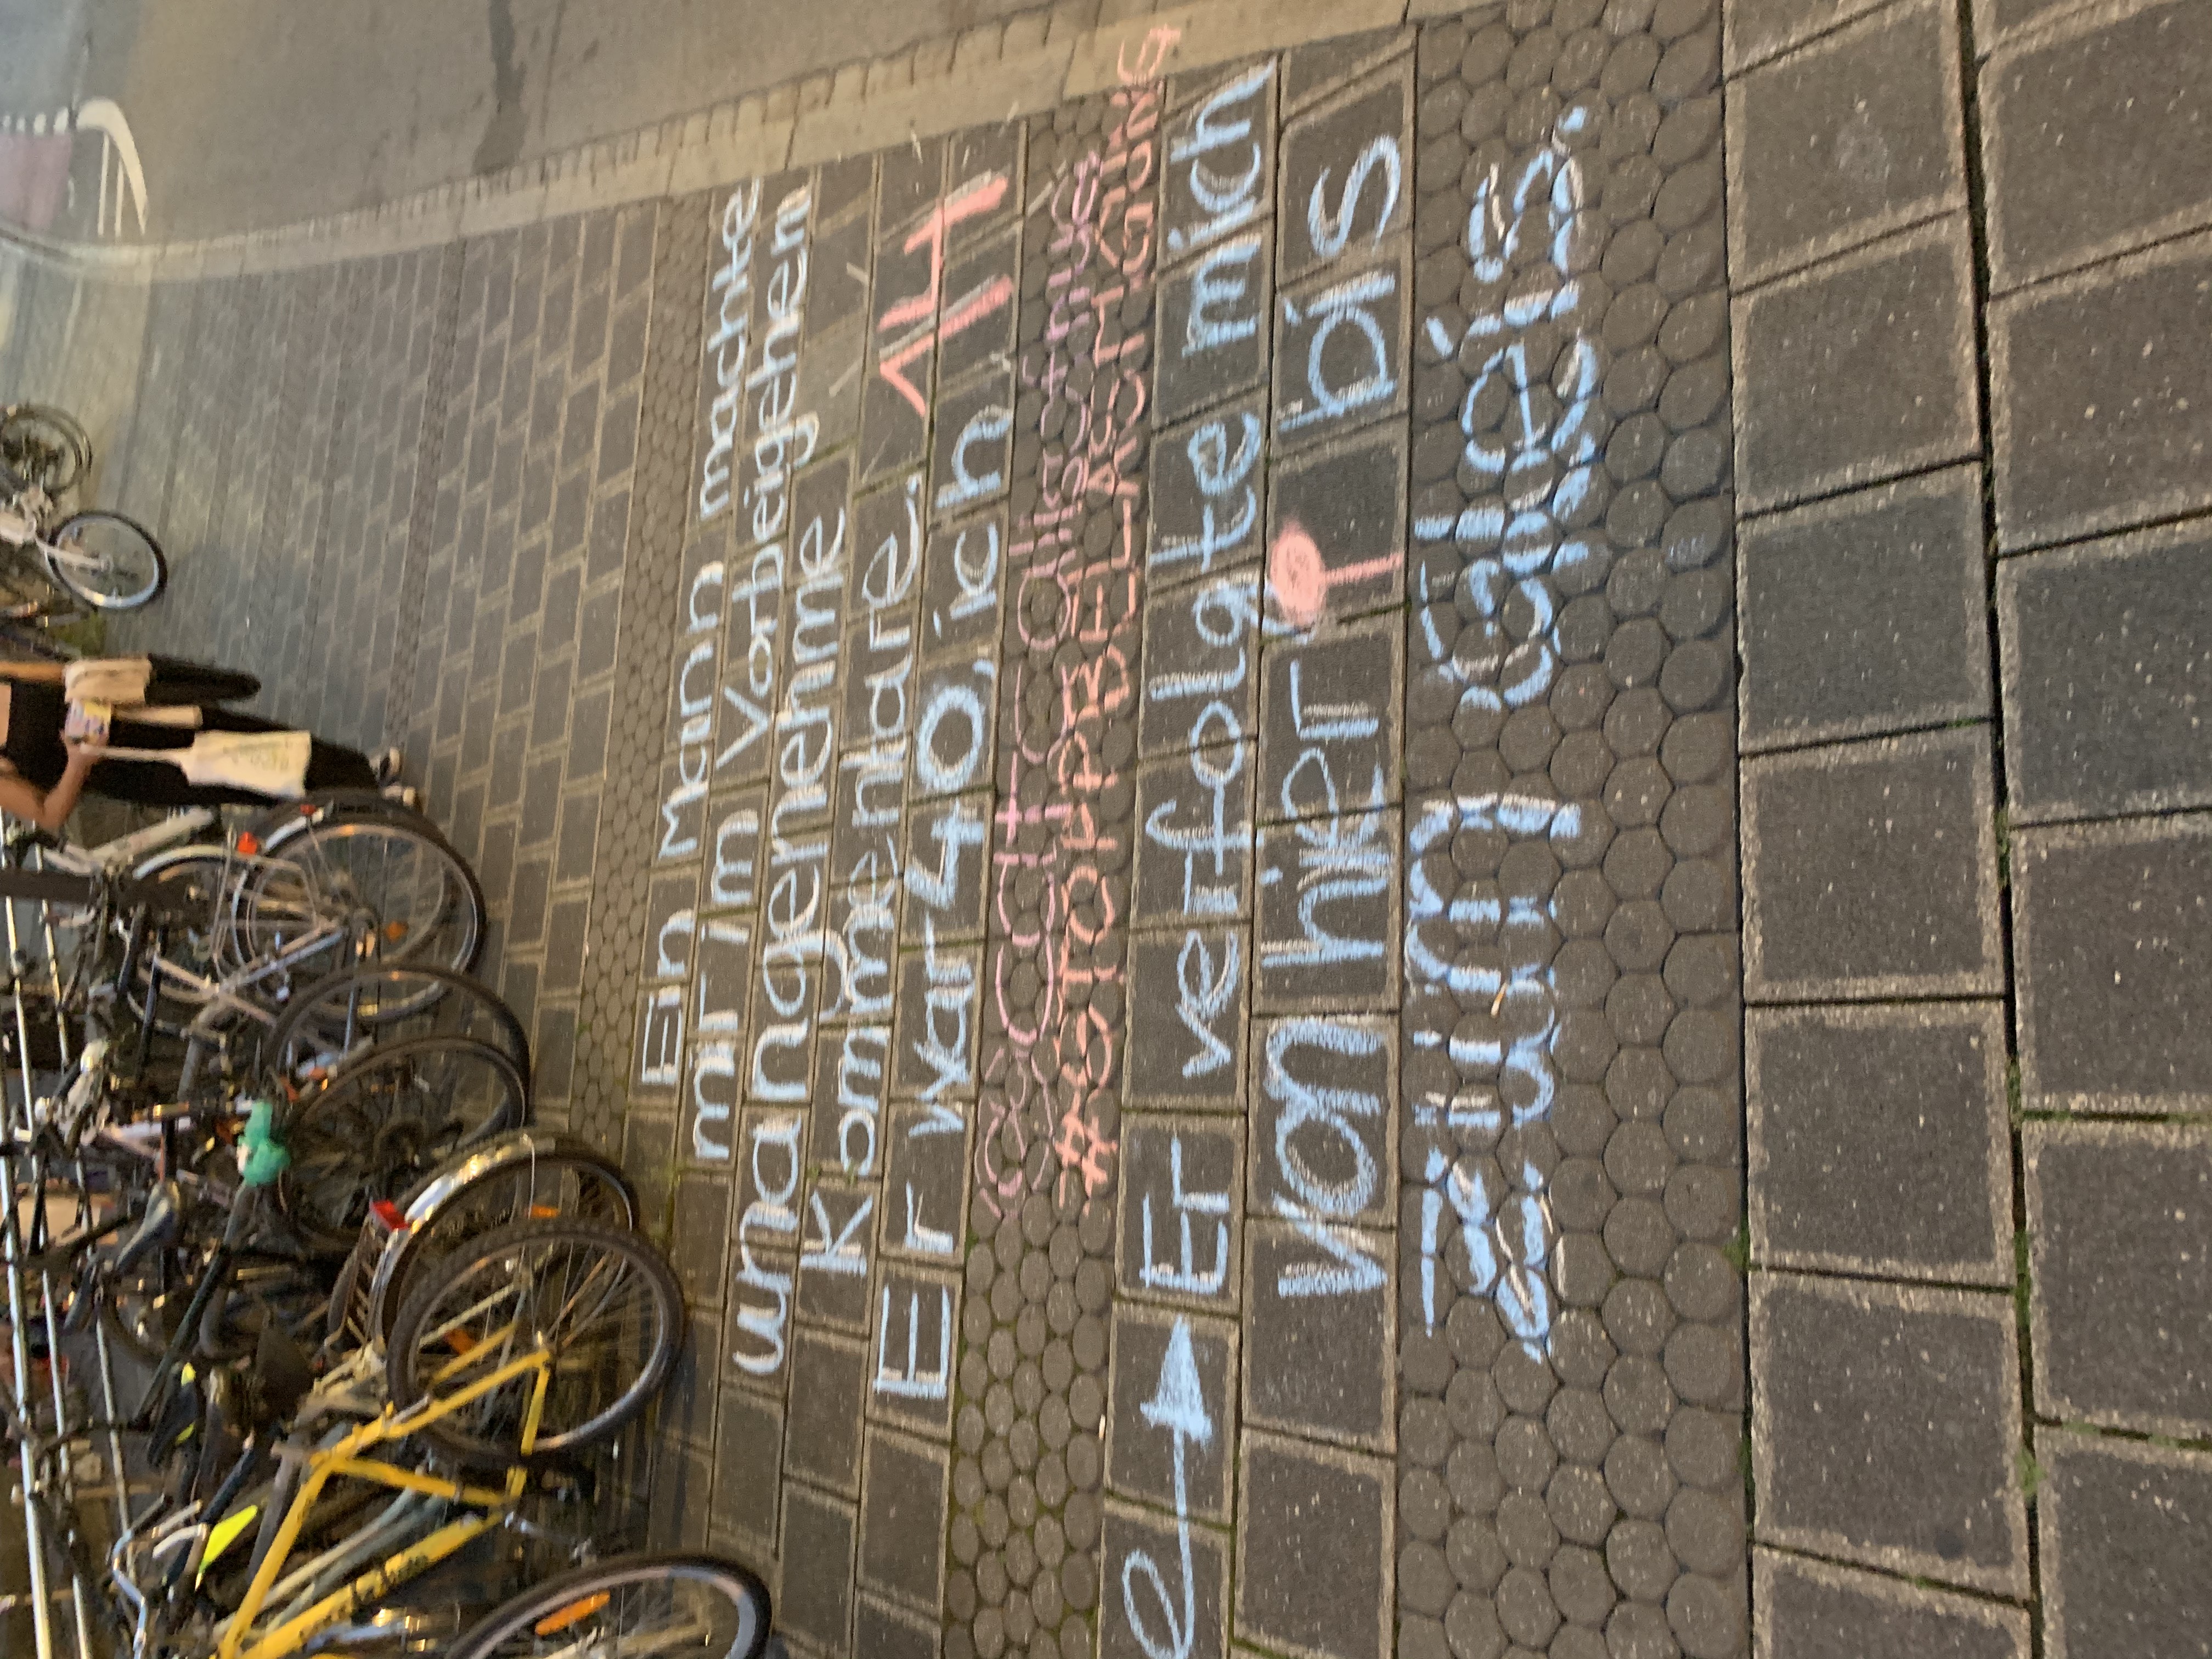 Ein Mann machte
mir im Vorbeigehen
unangenehme
Kommentare.
Er war 40, ich 14
@CATCALLSOF
#STOPPBELÄSTIGUNG
Er verfolgte mich
von hier bis
zum Gleis.